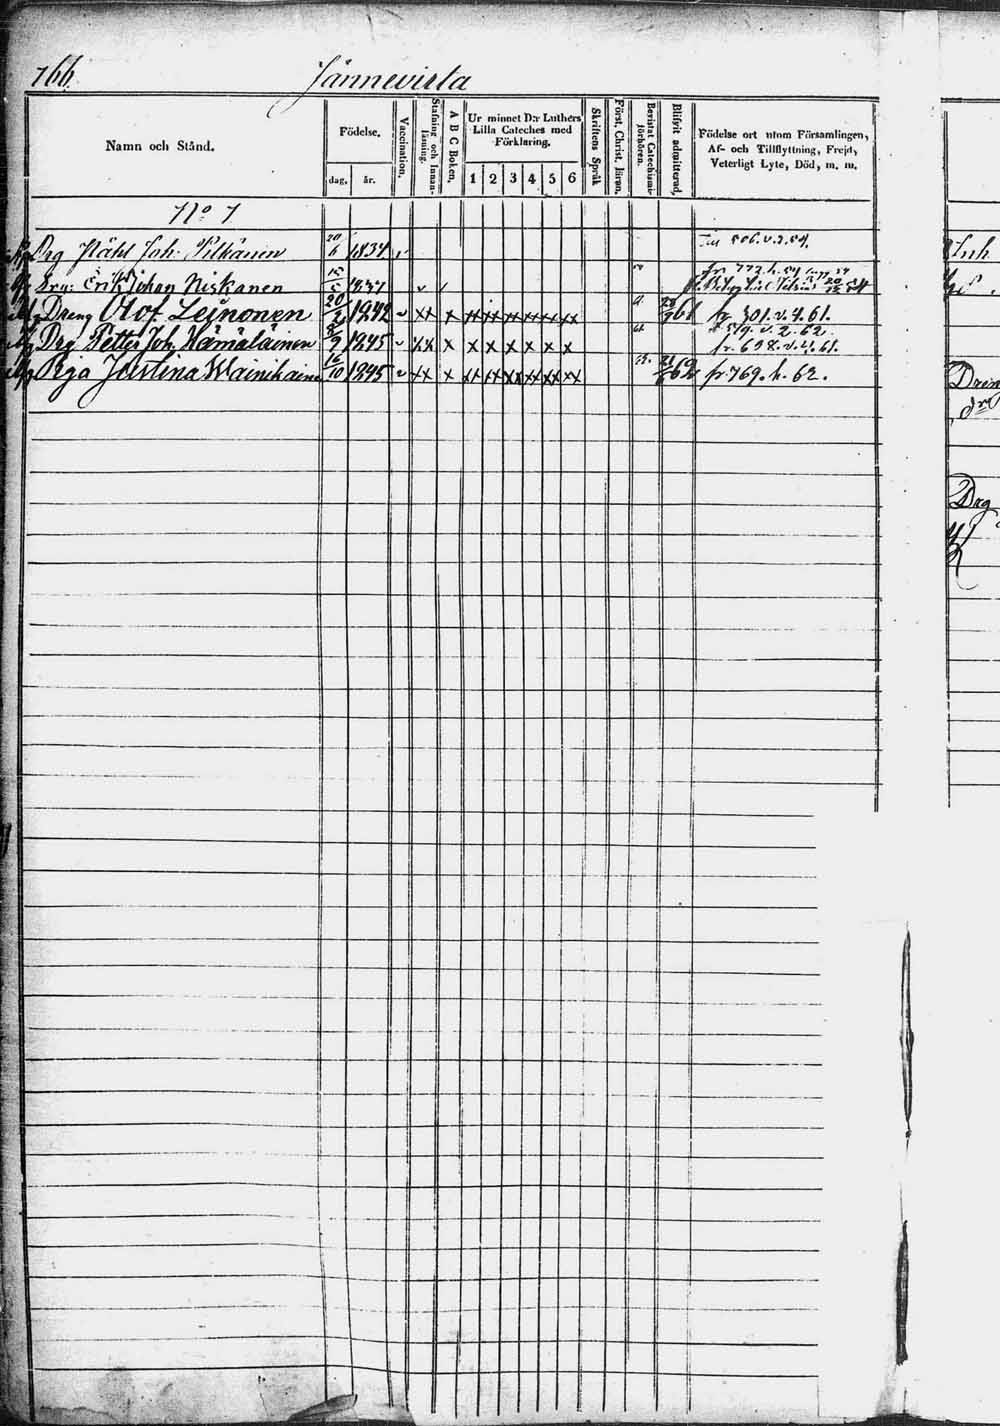 766.
Jännevirta
Namn och Stånd.
Födelse.
dag.
år.
Vaccination.
Stafning och Innanläsning.
A B C Boken.
Ur minnet D:r Luthers Lilla Cateches med Förklaring.
1 2 3 4 5 6
Skriftens Språk
Först. Christ. läran.
Bevistat Catechismi-förhören.
Blifvit admitterad.
Födelse ort utom Församlingen, Af- och Tillflyttning, Frejd, Veterligt Lyte, Död, m. m.
No 1
Drg Joh: Pitkänen 20/6 1834 v Till 506.v.2.59.
Drg: Erik Johan Niskanen 1837 v v fr 772.h.59
Dreng Olof Leinonen 20/2 1842 v xx x xx xx xx xx xx xx 61 fr 301.v.4.61.
Drg Petter Joh. Hämäläinen 1845 v xx x x x x x x x t 519.v.2.62.
fr. 698.v.4.61.
Piga Justina Wainikainen 16/10 1845 v xx x xx xx xx xx xx xx 62 fr 769.h.62.
Inh
Dreng
Drg